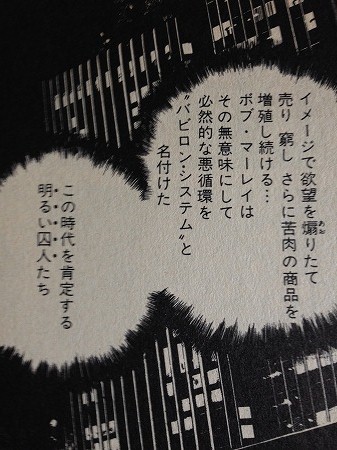 イメージで欲望を煽りたて
売り 窮し さらに苦肉の商品を
増殖し続ける…
ボブ・マーレイは
その無意味にして
必然的な悪循環を
〝バビロン・システム〟と
名付けた
この時代を肯定する
明るい囚人たち